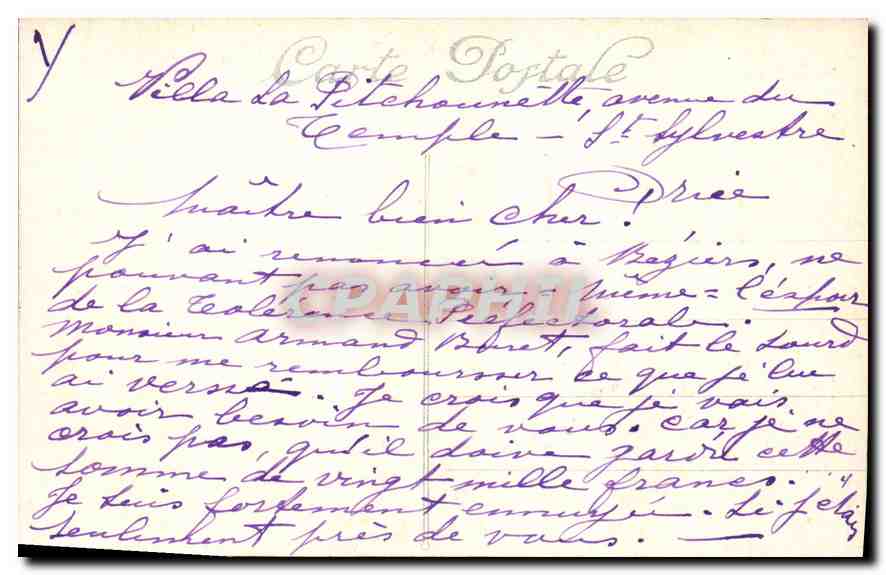 Carte Postale
Villa La Pitchounette, avenue du
Temple – St Sylvestre
Maître bien cher!
J'ai renoncé à Béziers, ne
pouvant pas avoir – même = l'éspoir
de la Tolérance Préfectorale.
Monsieur Armand Buret, fait le sourd
pour me rembourser ce que je lui
ai versé. Je crois que je vais
avoir besoin de vous. car je ne
crois pas, qu'il doive garder cette
somme de vingt mille francs.
Je suis fortement ennuyé. Si j'étais
seulement près de vous. —